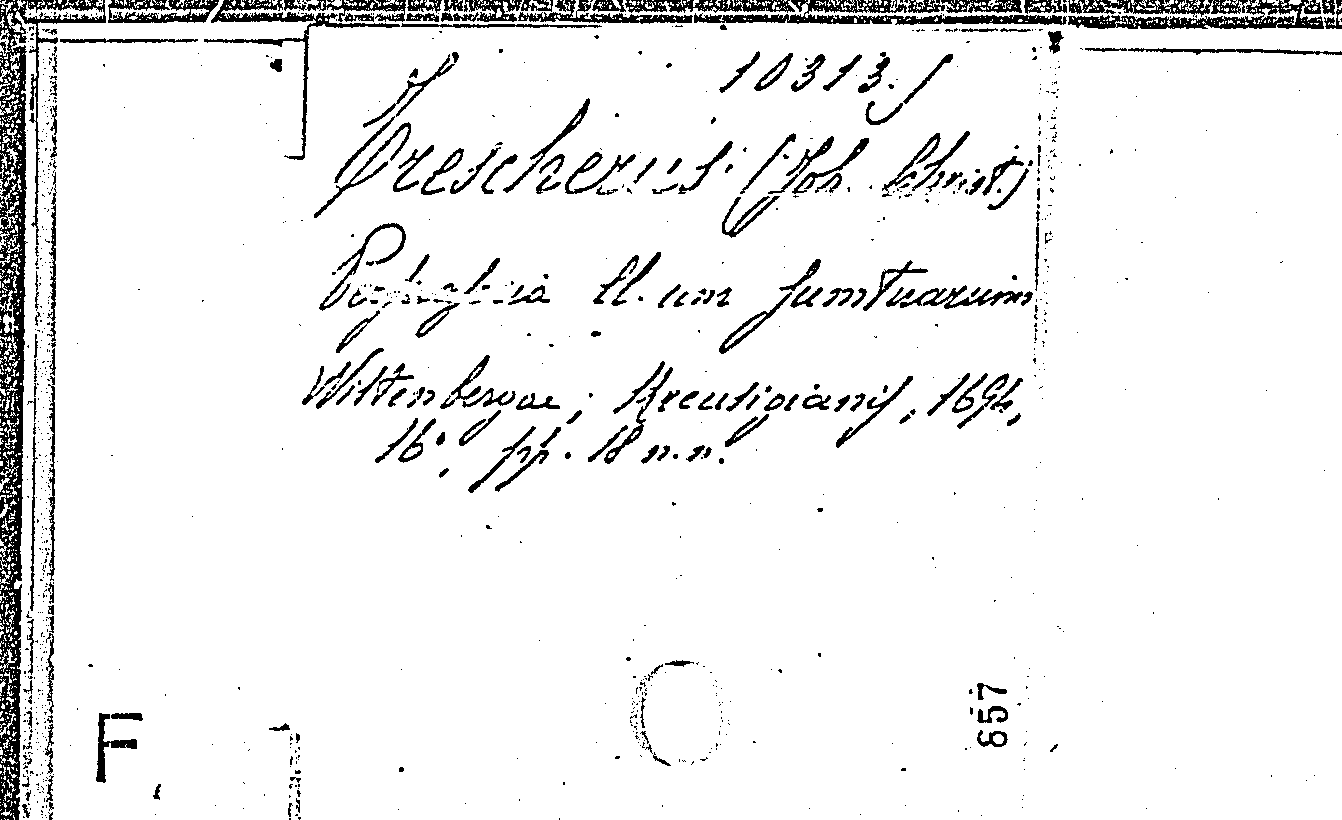 10313.f
Frescherus (Joh. Christ.)
Ll. um sumtuarum
Wittenbergae, Kreusigianis, 1694,
16°, pp. 18 n.n.
857
F